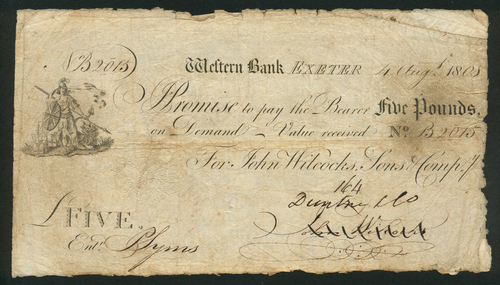 No. B2015 Western Bank EXETER 4 Augt. 180
I Promise to pay the Bearer Five Pounds,
on Demand Value received No. B2015
For John Wilcocks, Sons & Compy.
164
£FIVE.
Entd.